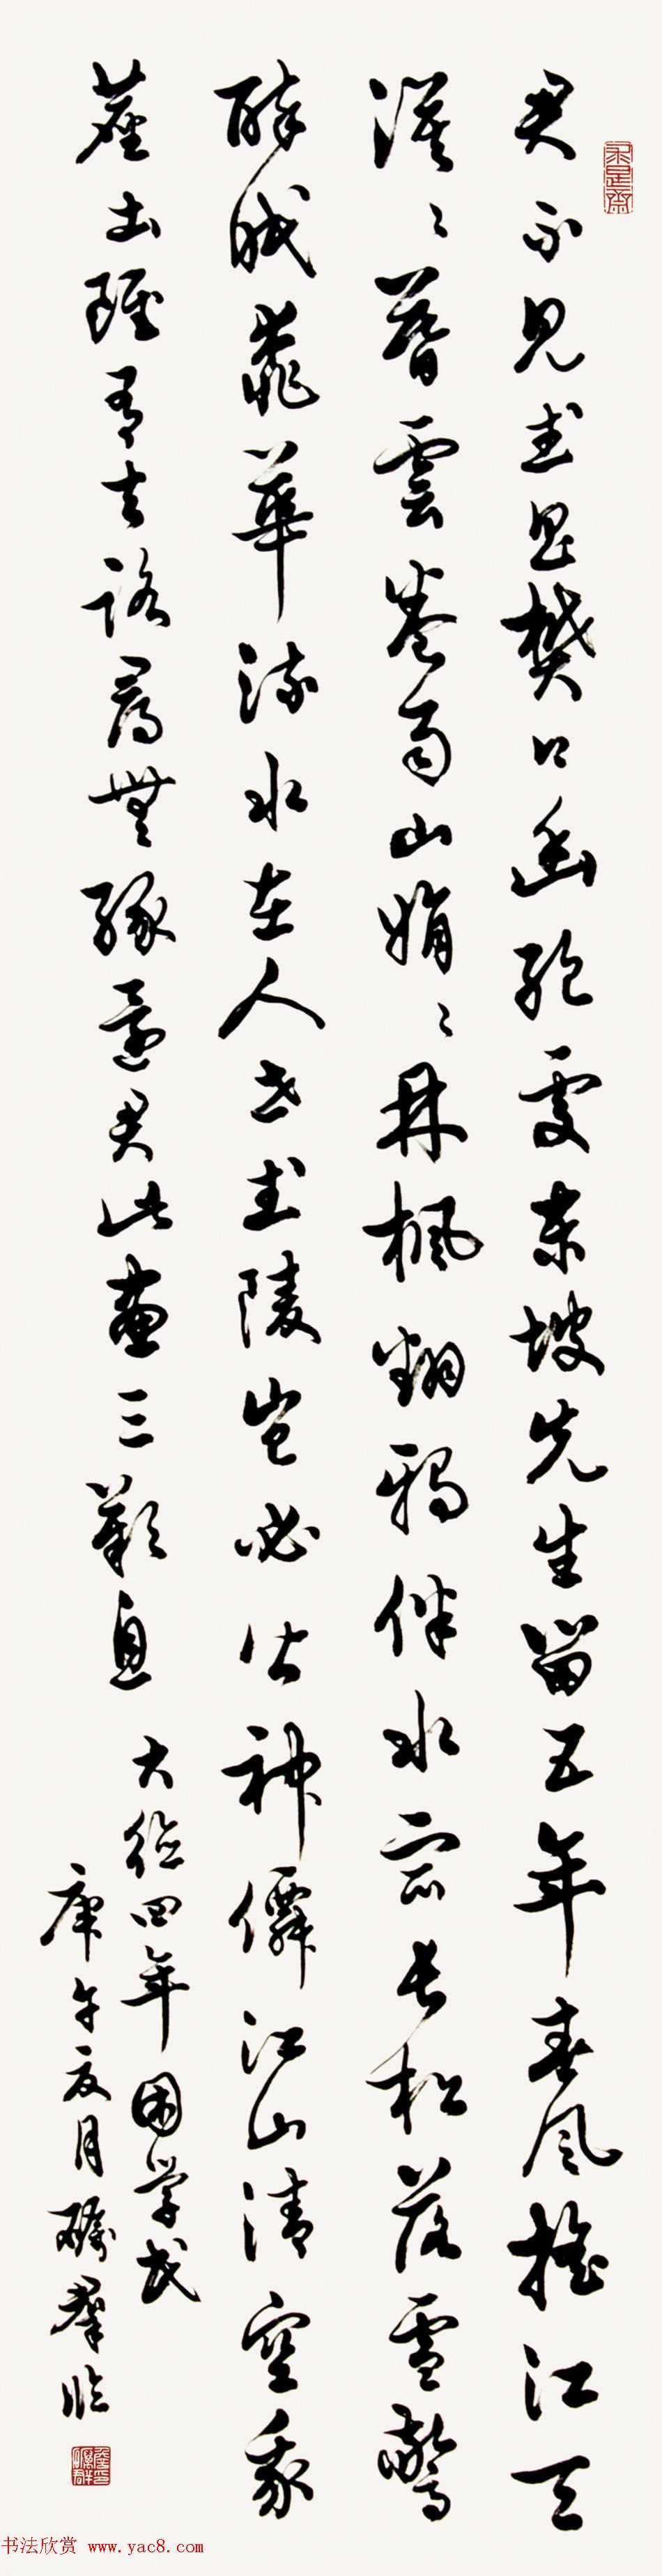 求是齋
君不見武昌樊口幽絕處東坡先生留五年春風搖江天
漠〻暮雲卷雨山娟〻丹楓翻鴉伴水宿長松落雪驚
醉眠桃華流水在人世武陵豈必皆神僊江山清空我
塵土雖有去路尋無緣還君此畫三歎息
大德四年困學民
庚午夏月羣臨
书法欣赏 www.yac8.com